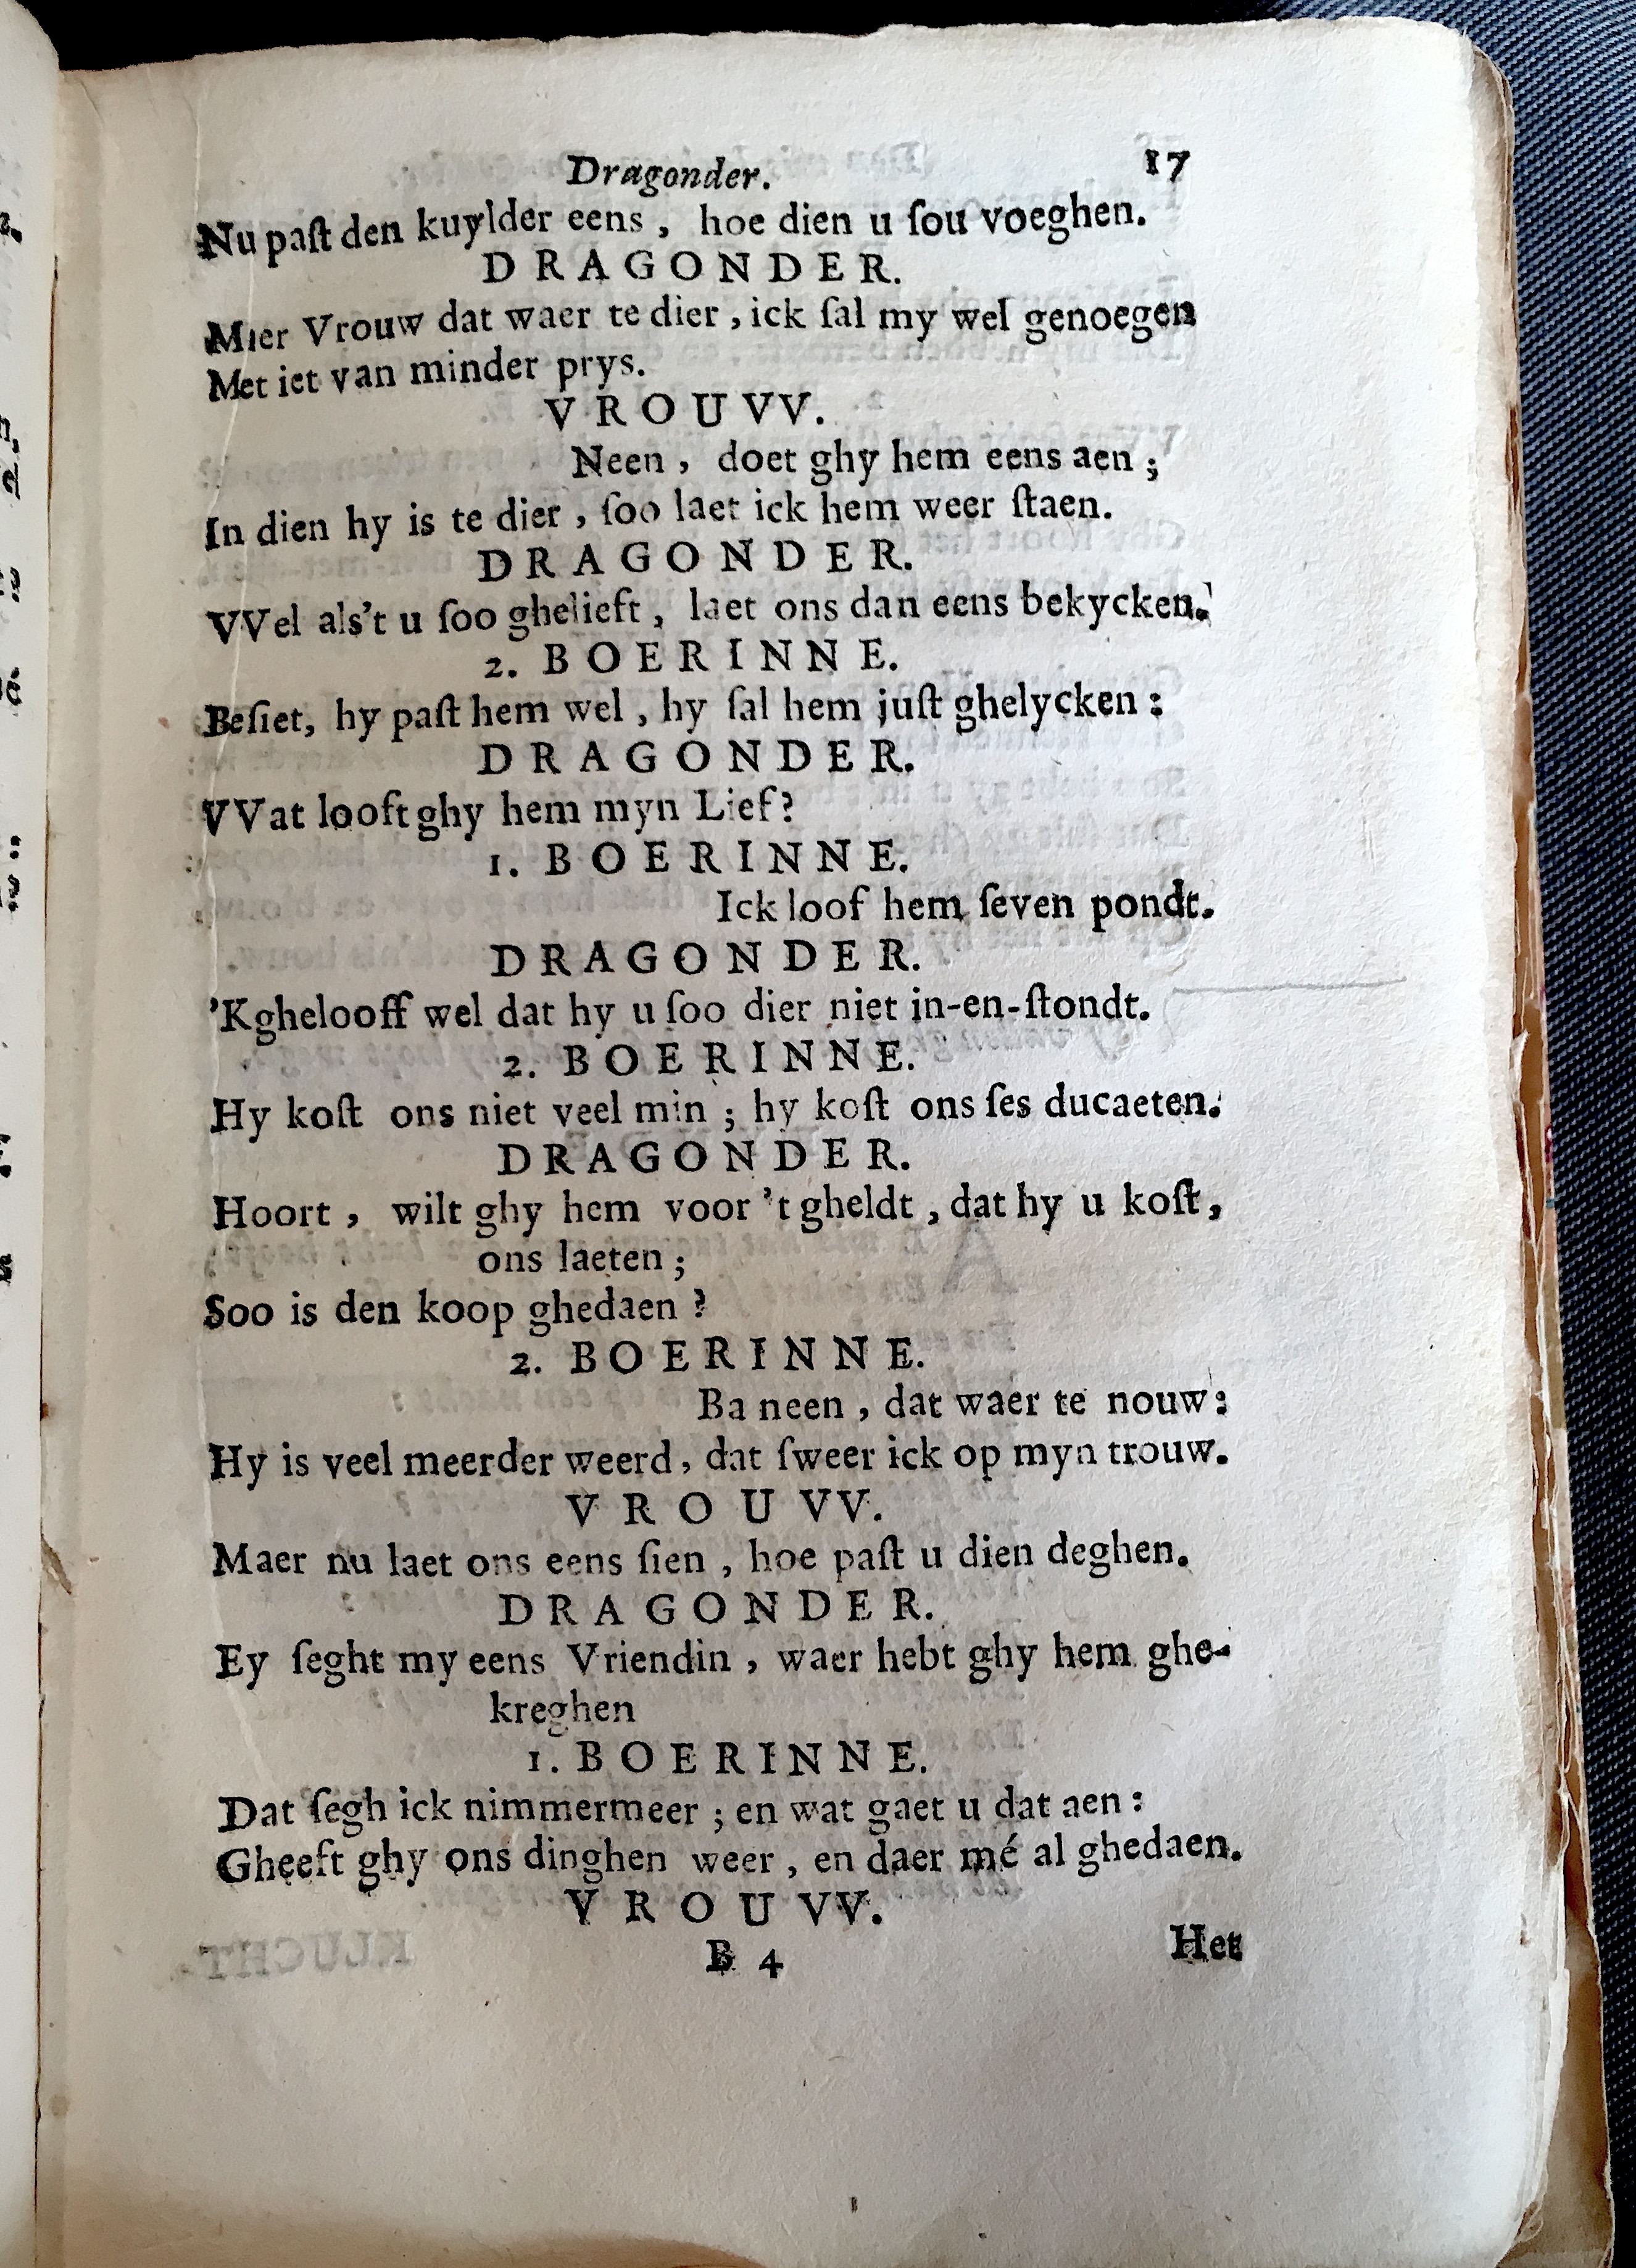 Dragonder. 17
Nu paſt den kuylder eens, hoe dien u ſou voeghen.
DRAGONDER.
Mier Vrouw dat waer te dier, ick ſal my wel genoegen
Met iet van minder prys.
VROUVV.
Neen, doet ghy hem eens aen;
In dien hy is te dier, ſoo laet ick hem weer ſtaen.
DRAGONDER.
VVel als't u ſoo ghelieft, laet ons dan eens bekycken.
2. BOERINNE.
Beſiet, hy paſt hem wel, hy ſal hem juſt ghelycken:
DRAGONDER.
VVat looft ghy hem myn Lief?
1. BOERINNE.
Ick loof hem ſeven pondt.
DRAGONDER.
'Kghelooff wel dat hy u ſoo dier niet in-en-ſtondt.
2. BOERINNE.
Hy koſt ons niet veel min; hy koſt ons ſes ducaeten.
DRAGONDER.
Hoort, wilt ghy hem voor 't gheldt, dat hy u koſt,
ons laeten;
Soo is den koop ghedaen?
2. BOERINNE.
Ba neen, dat waer te nouw:
Hy is veel meerder weerd, dat ſweer ick op myn trouw.
VROUVV.
Maer nu laet ons eens ſien, hoe paſt u dien deghen.
DRAGONDER.
Ey ſeght my eens Vriendin, waer hebt ghy hem ghe-
kreghen
1. BOERINNE.
Dat ſegh ick nimmermeer; en wat gaet u dat aen:
Gheeft ghy ons dinghen weer, en daer mé al ghedaen.
VROUVV.
B 4 Het